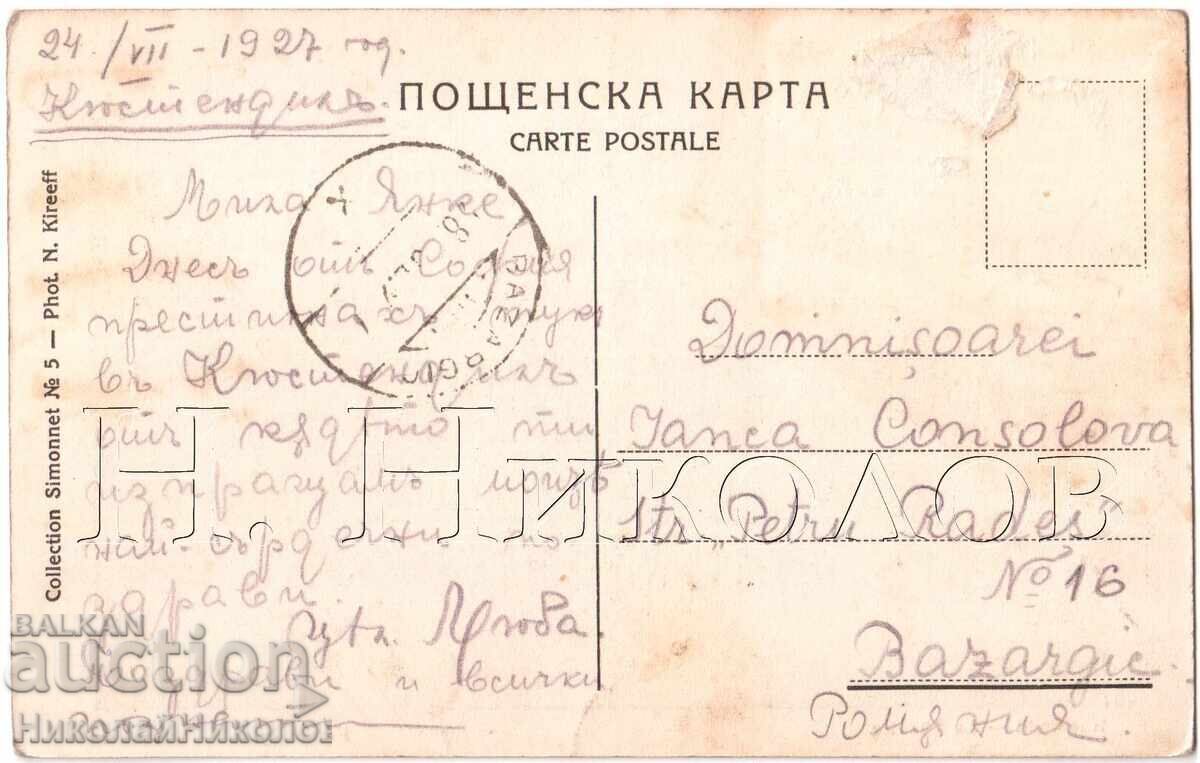 24/VII - 1927 год.
Кюстендилъ.
ПОЩЕНСКА КАРТА
CARTE POSTALE
Collection Simonnet № 5 — Phot. N. Kireeff
Мила Янке
Днесъ отъ София
пристигнахъ тук
въ Кюстендилъ
отъ кѫдето ти
изпращамъ
най-сърдечни по
здрави.
Люба.
Поздрави и всички
Domnișoarei
Ianca Consolova
Str. „Petru Rareș"
No 16
Bazargic.
Ромѫния.
Н. Николов
BALKAN
auction
НиколайНиколов